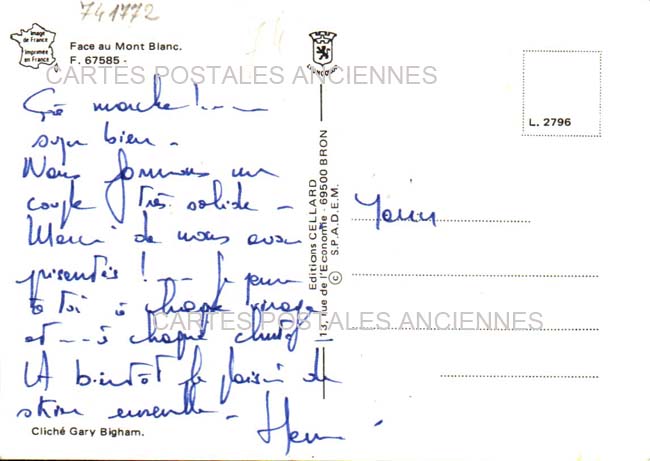 741772
Image de France
imprimée en France
Face au Mont Blanc.
F. 67585 -
CARTES POSTALES ANCIENNES
ça marche !---
super bien -
Nous formons un
couple très solide -
Merci de nous avoir
présentés ! -- Je pense
à toi à chaque virage
et -- à chaque chute -
A bientôt le plaisir de
skier ensemble -
CARTES POSTALES ANCIENNES
Cliché Gary Bigham.
Editions CELLARD
13, rue de l'Economie - 69500 BRON
© S.P.A.D.E.M.
L. 2796